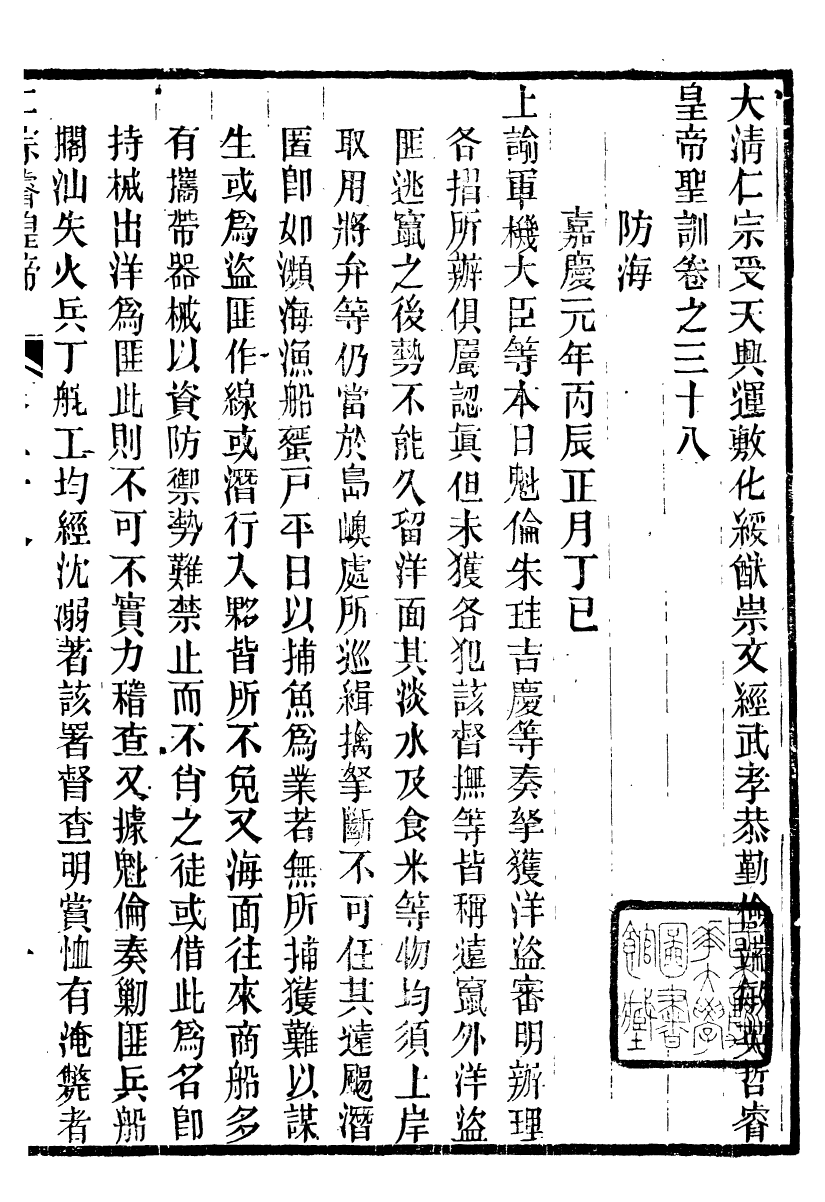 大淸仁宗受天興運敷化綏猷崇文經武孝恭勤儉端敏英哲睿
皇帝聖訓卷之三十八
防海
嘉慶元年丙辰正月丁巳
上諭軍機大臣等本日魁倫朱珪吉慶等奏拏獲洋盜審明辦理
各摺所辦俱屬認眞但未獲各犯該督撫等皆稱遠竄外洋盜
匪逃竄之後勢不能久留洋面其淡水及食米等物均須上岸
取用將弁等仍當於島嶼處所巡緝擒拏斷不可任其遠颺潛
匿卽如瀕海漁船蜑戸平日以捕魚爲業若無所捕獲難以謀
生或爲盜匪作線或潛行入夥皆所不免又海面往來商船多
有攜帶器械以資防禦勢難禁止而不肖之徒或借此爲名卽
持械出洋爲匪此則不可不實力稽查又據魁倫奏勦匪兵船
擱汕失火兵丁舵工均經沈溺著該署督查明賞恤有淹斃者
仁宗睿皇帝